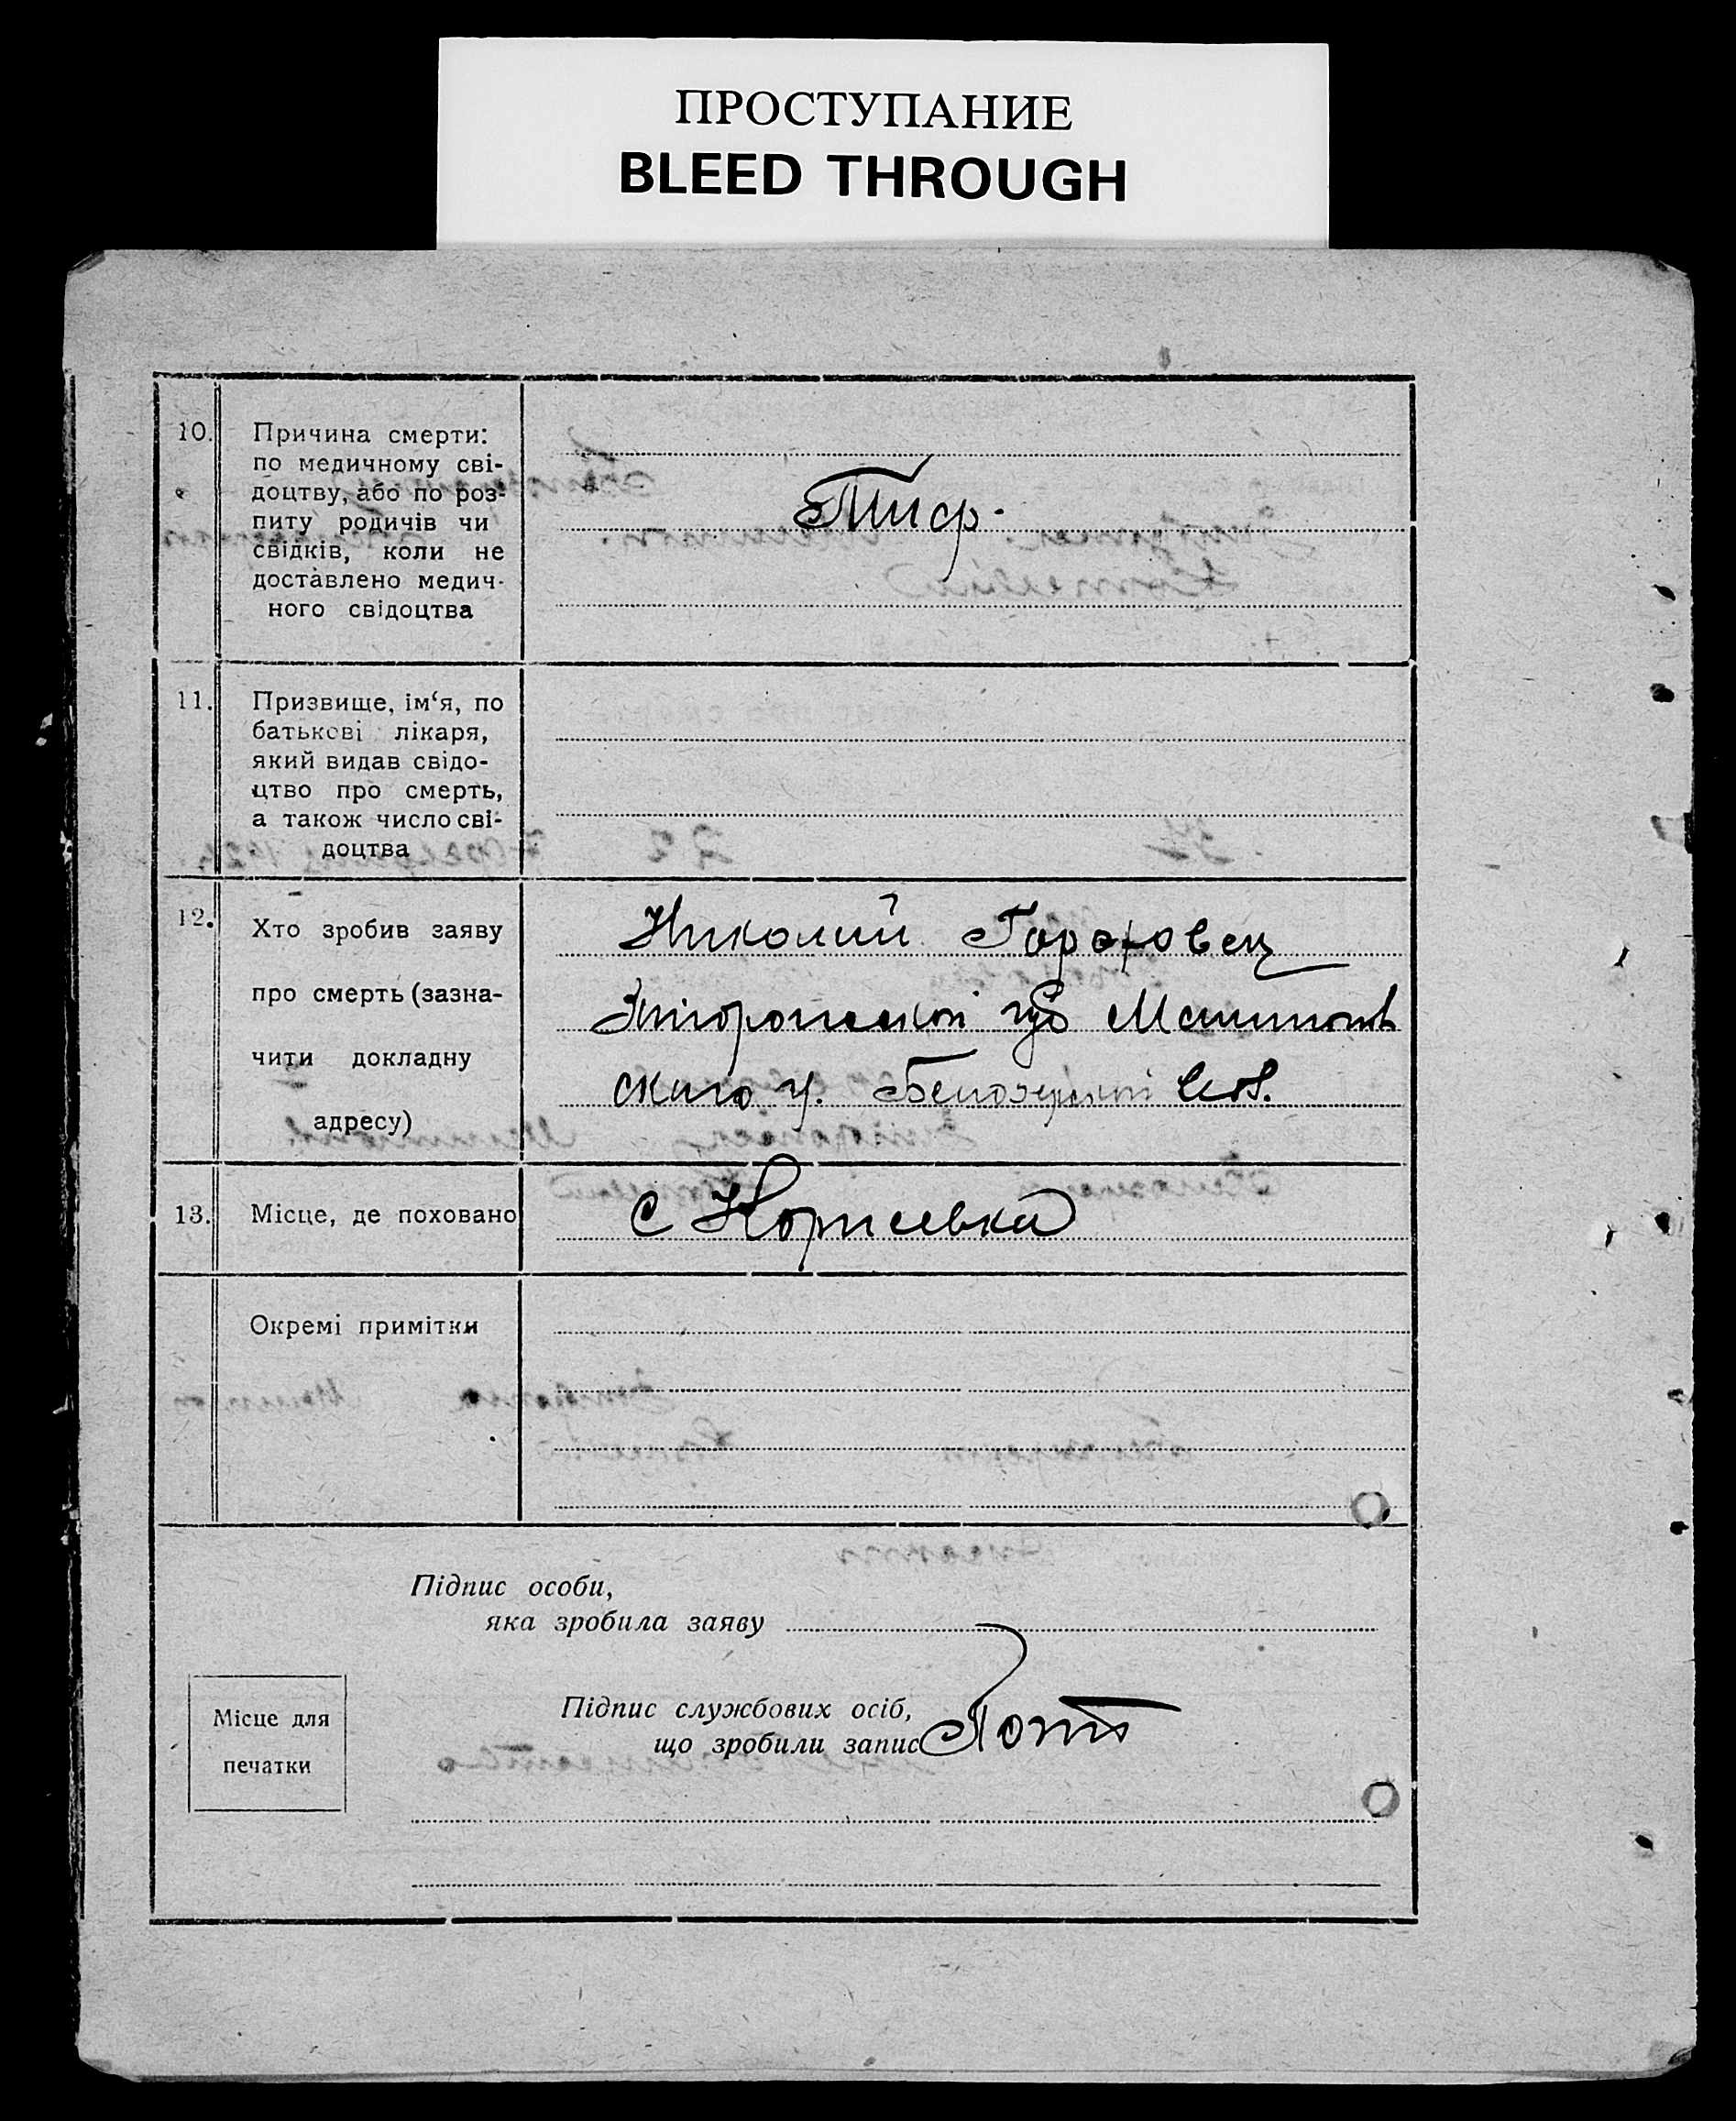 ПРОСТУПАНИЕ
BLEED THROUGH
10. Причина смерти:
по медичному сві-
доцтву, або по роз-
питу родичів чи
свідків, коли не
доставлено медич-
ного свідоцтва
Тиф.
11. Призвище, ім‘я, по
батькові лікаря,
який видав свідо-
цтво про смерть,
а також число сві-
доцтва
12. Хто зробив заяву
про смерть (зазна-
чити докладну
адресу)
Николай Гороховец
губ
ского у. Белозерской
13. Місце, де поховано
с
Окремі примітки
Підпис особи,
яка зробила заяву
Підпис службових осіб,
що зробили запис
Місце для
печатки